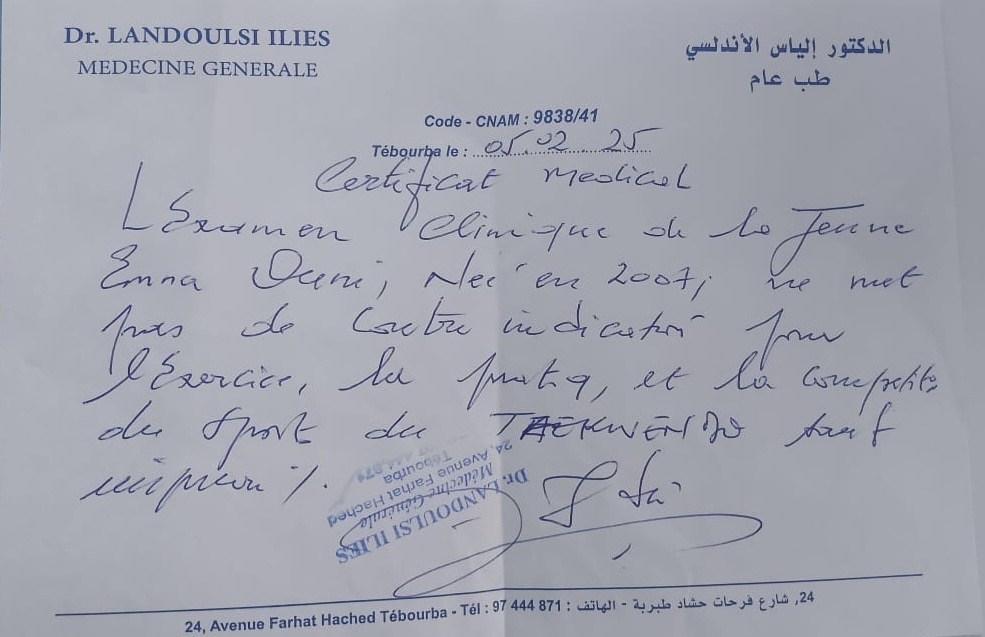 Dr. LANDOULSI ILIES
MEDECINE GENERALE
الدكتور إلياس الأندلسي
طب عام
Code - CNAM : 9838/41
Tébourba le : 05.02.25
Certificat Medical
L'Examen Clinique de la Jeune
Emna Ouni, Neé en 2007, ne met
pas de Contre indication pour
l'Exercice, la pratiq, et la competit
du Sport du TAEKWENDO sauf
imprevu %.
Dr. LANDOULSI ILIES
Médecine Générale
24, Avenue Farhat Hached
Tébourba
24, شارع فرحات حشاد طبربة - الهاتف : 97 444 871
24, Avenue Farhat Hached Tébourba - Tél : 97 444 871